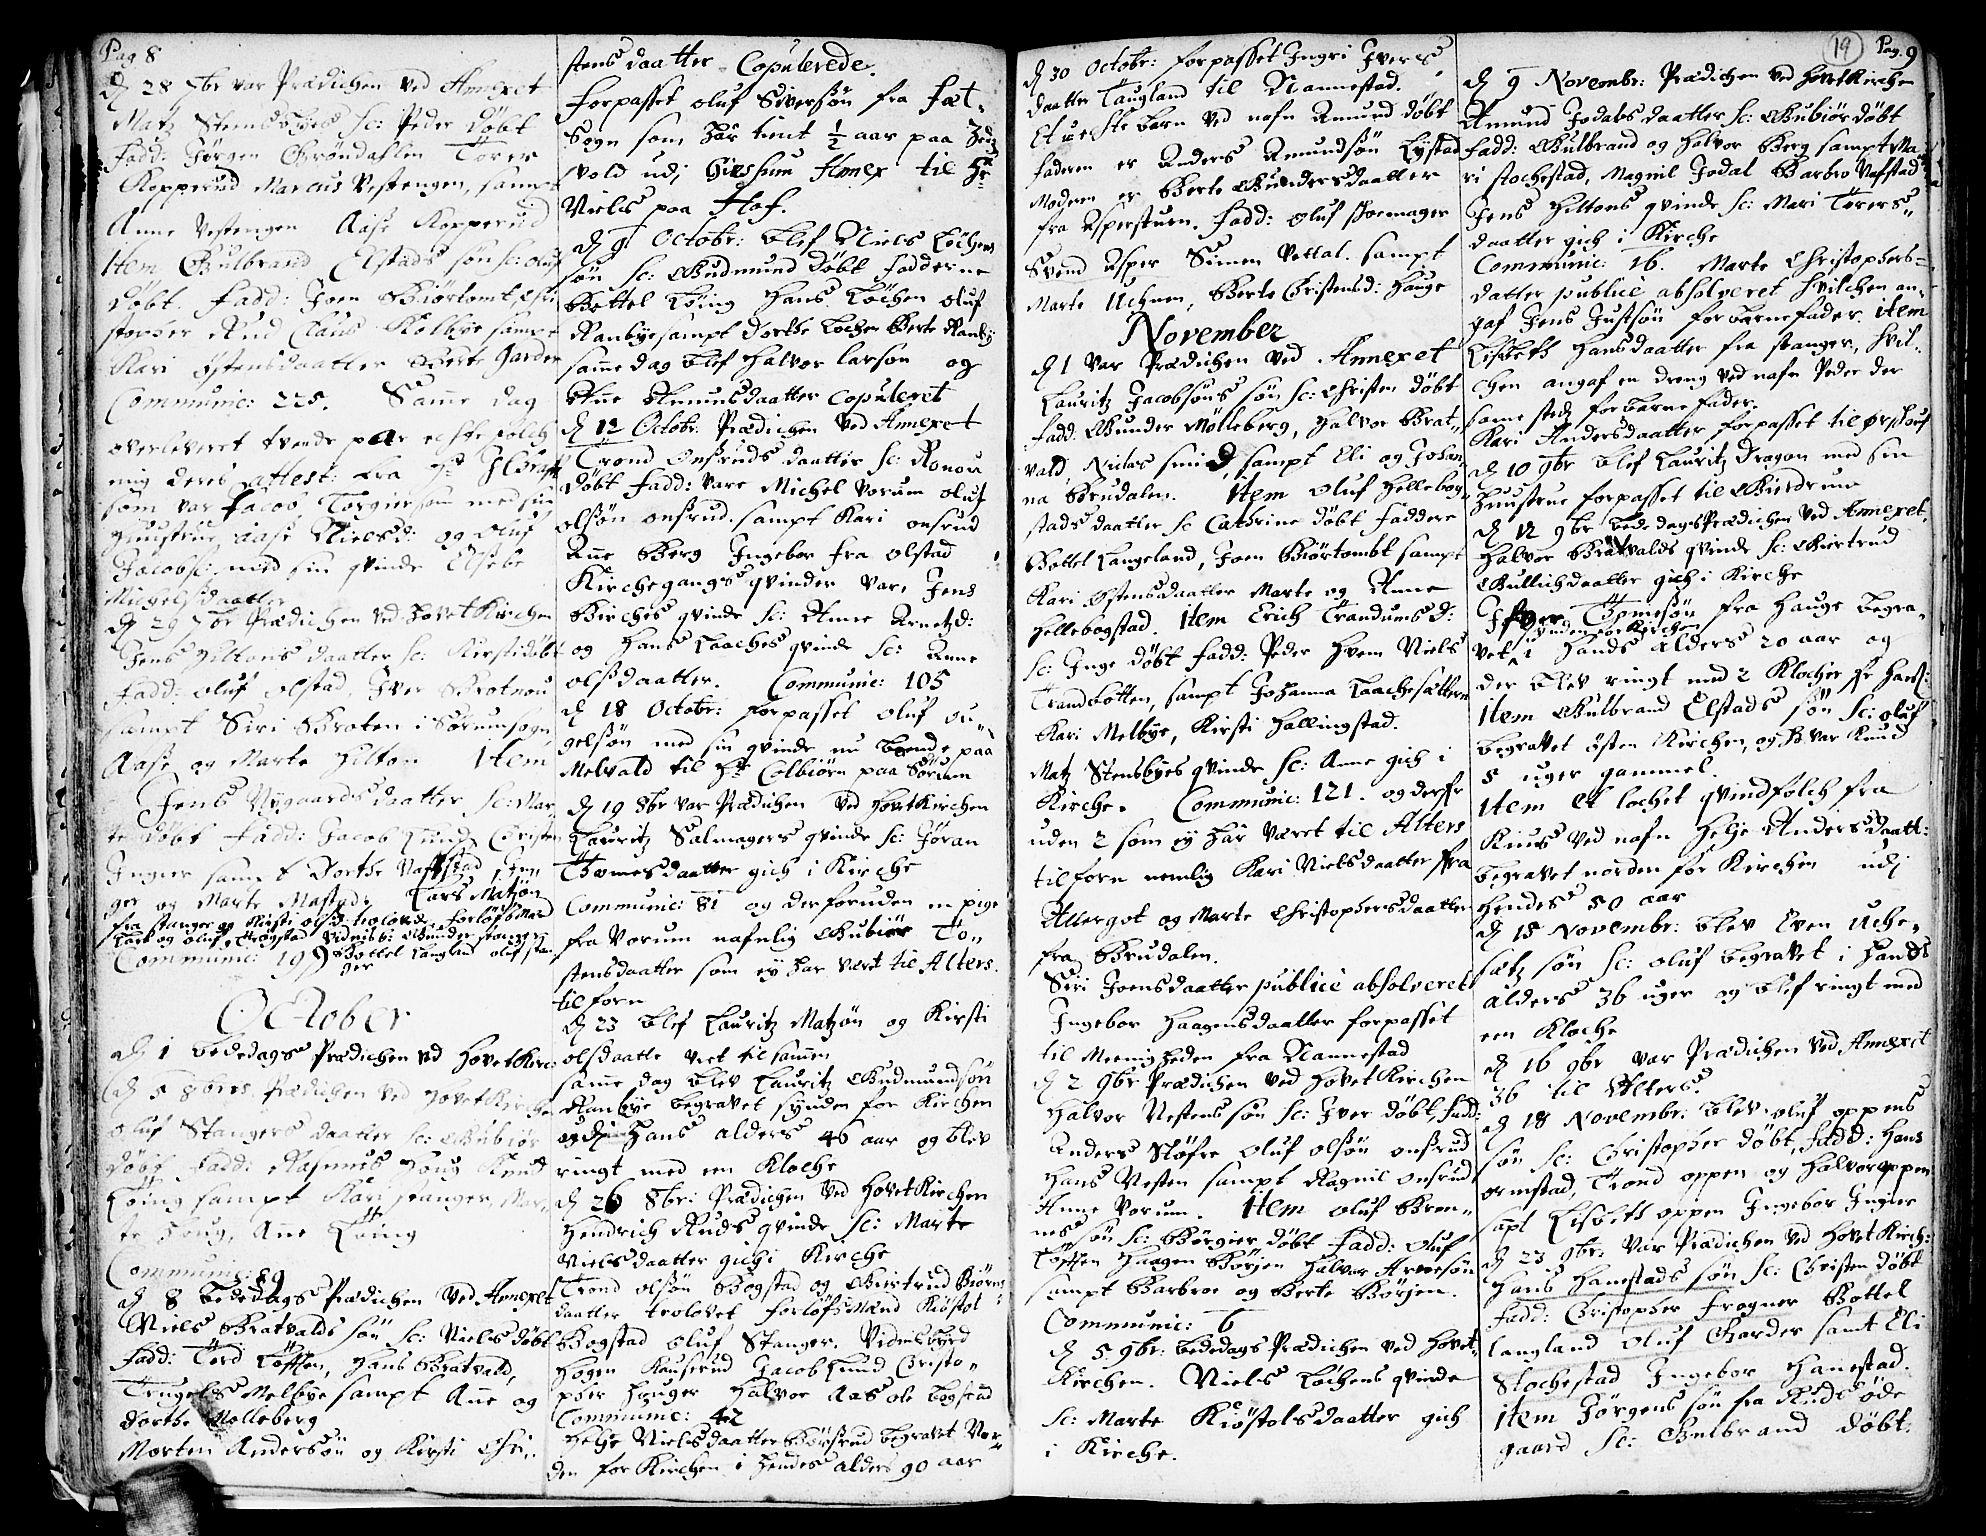 Pag 8
d 28 7br var Prædichen ved Annexet
Matz Stensbyes sc: Peder døbt
Fadd: Jørgen Grøndahlen Torer
Kopperud Marcus Vestengen, sampt
Anne Vestengen Aase Kopperud
Item Gulbrand Elstads søn sc: oluf
døbt. Fadd: Joen Biørtomt, Chri
stopher Rud Claus Kolbye sampt
Kari Østensdaatter Berte Garder
Communic: 225. Same dag
overleveret tvende par echte folch
mig deres attest: fra
som var Jacob Torgiersøn med sin
Huustrue Aase Nielsd: og Oluf
Jacobs: med sin qvinde Elsebe
Michelsdaatter
d 29 7br Prædichen ved HovetKirchen
Jens Hiltons daatter sc: Kirsti døbt
Fadd: oluf olstad, Iver Brotnou
sampt Siri Broten i Sørumsogn
Aase og Marte Hilton Item
Jens Nygaards daatter sc: Mar
te døbt Fadd: Jacob Lund Christen
Ingier sampt Dorthe Vassstad, In
ger og Marte Mastad. Lars Matzøn
fra Stanger og Kirsti olsd: trolovede forløfsMænd
Lars og oluf Trøgstad Vidnisb: Gunder stanger
Communic: 199 Bottel Langland oluf stan
ger
October
d 1 bededags Prædichen ved HovetKirc:
d 5 8bris Prædichen ved HovetKirche
Oluf Stangers daatter sc: Gubiør
døbt Fadd: Rasmus Houg Knud
Løing sampt Kari stanger, Mar
te Houg, Ane Løing
Communic: 89
d 8 bededags Prædichen ved Annexet
Niels Bratvalds søn sc: Niels døbt
Fadd: Tord Løchen, Hans Bratvald,
Trugels Melbye sampt Ane og
Dorthe Molleberg
Morten Andersøn og Kirsti Chri,,
stensdaatter Copulerede.
forpasset oluf Siversøn fra Fet
Sogn som har tient 1/2 aar paa Eidz
vold udj Giersum Annex til Hr
Niels paa Hof.
d 9 Octobr: blef Niels Løchens
søn sc: Gudmund døbt Fadderne
Bottel Løing Hans Løchen oluf
Ranbye sampt Dorthe Lochen Berte Ranbÿ
same dag blef Halvor Larsøn og
Ane Amunsdaatter copuleret
d 12 Octob: Prædichen ved Annexet
Trond Onsruds daatter sc: Ronou
døbt Fadd: vare Michel Vorum oluf
olsøn onsrud. sampt Kari onsrud
Ane Berg Ingebor fra olstad
Kirchegangsqvinder var, Jens
Birches qvinde sc: Anne Arnetzd:
og Hans Laaches qvinde sc: Anne
olsdaatter. Communic: 105
d 18 Octobr: forpasset oluf Ou,,
gelsøn med sin qvinde nu boende paa
Melvald til Hr Colbiørn paa Sørum
d 19 8br var Prædichen ved HovetKirchen
Lauritz Salmagers qvinde sc: Jøran
Thomesdaatter gich i Kirche
Communic: 81 og derforuden en pige
fra Vorum nafnlig Gubiør To,,
stensdaatter som ej har vært til Alters
tilforn
d 23 blef Lauritz Matzøn og Kirsti
olsdaatte viet tilsamen
same dag blev Lauritz Gudmundsøn
Ranbye begravet synden for Kirchen
udj Hans alders 46 aar og blev
ringt med en Kloche
d 26 8br: Prædichen ved HovetKirchen
Hendrich Ruds qvinde sc: Marte
Nielsdaatter gich i Kirche
Trond olsøn Bogstad og Giertrud Biørns
daatter trolovet forløfsMænd Kiøstol
Bogstad oluf Stanger. Vidnisbyrd
Hogen Kauserud Jacob Lund Christo,,
pher Houger Halvor Aas ole bogstad
Communic: 42
Helje Nielsdaatter Børsrud begravet Nor,,
den for Kirchen i hendes alders 90 aar
19
Pag. 9
d 30 Octobr: forpasset Ingri Ivers,,
daatter Taugland til Nannestad.
Et uechte barn ved nafn Amund døbt
faderen er Anders Amundsøn Lystad
Moderen er Berte Gundersdaatter
fra Aspersturn. Fadd: Oluf skomager
Svend Asper Simen Vettal. sampt
Marte Uchnem, Berte Christensd: Hauge
November
d 1 var Prædichen ved Annexet
Lauritz Jacobsøns søn sc: Christen døbt
Fadd: Gunder Mølleberg, Halvor Brat,,
vald, Niclas smid, sampt Eli og Johan,,
na Brudalen. Item Oluf Hellebog,,
stads daatter sc Cathrine døbt Faddere
Bottel Langeland, Joen Biørtombt sampt
Kari Østensdaatter Marte og Anne
Hellebogstad. Item Erich Trandums d:
sc: Inge døbt Fadd: Peder Hvem Niels
Trandbotten, sampt Johanna Laachesætter
Kari Melbye, Kirsti Hallingstad.
Matz Stensbyes qvinde sc: Anne gich i
Kirche. Communic: 121. og derfor
uden 2 som ej har været til Alters
tilforn nemlig Kari Nielsdaatter fra
Allergot og Marte Christophersdaatter
fra Brudalen.
Siri Joensdaatter publicè absolveret
Ingebor Haagensdaatter forpasset
til Meenigheden fra Nannestad
d 2 9br Prædichen ved HovetKirchen
Halvor Nestens søn sc: Iver døbt, Fadd:
Anders Røfse Oluf olsøn onsrud
Hans Nesten sampt Ragnil onsrud
Anne Vorum. Item oluf Bren,,
nes søn sc: Børgier døbt Fadd: Oluf
Løchen Haagen Børjen Halvor Arnesøn
sampt Barbroe og Berte Børjen.
Communic: 6
d 5 9br: bededags Prædichen ved Hovet,,
Kirchen. Niels Løchens qvinde
sc: Marte Kiøstolsdaatter gich
i Kirche.
d 9 Novembr: Prædichen ved HovetKirche
Amund Jodals daatter sc: Gubiør døbt
Fadd: Gulbrand og Halvor Berg sampt Ma,,
ri stochestad, Magnil Jodal Barbro Vasstad
Jens Hiltons qvinde sc: Mari Torers,,
daatter gich i Kirche
Communic: 16. Marte Christophers,,
datter publicè absolveret hvilchen an,,
gaf Jens Justsøn for barnefader. Item
Lisbeth Hansdaatter fra stanger, hvil,,
chen angaf en dreng ved nafn Peder der
same stedz for barnefader.
Kari Andersdaatter forpasset til Ørsouf
d 10 9br blef Lauritz Dragon med sin
Huustrue forpasset til Gierdrum
d 12 9br bededags Prædichen ved Annexet,
Halvor Bratvalds qvinde sc: Giertrud
Gullichdaatter gich i Kirche
Ifver Thomesøn fra Hauge begra,,
synden for Kirchen
vet i hands alders 20 aar og
der blev ringt med 2 Klocher for ham:
Item Gulbrand Elstads søn sc: oluf
begravet østen Kirchen, og var Knud
5 uger gammel.
Item et lochet qvindfolch fra
Kinus ved nafn Helje Andersdaatt:
begravet norden for Kirchen udj
hendes 50 aar
d 15 Novembr: blev Even Uche,,
setz søn sc: oluf begravet i hands
alders 36 uger og blef ringt med
een Kloche
d 16 9br var Prædichen ved Annexet
36 til Alters.
d 18 Novembr: blev oluf oppens
søn sc: Christopher døbt, Fadd: Hans
ormstad, Trond oppen og Halvor oppen
sapt Lisbeth oppen Ingebor Ingier
d 23 9br: var Prædichen ved HovetKirch:
Hans Hanestads søn sc: Christen døbt
Fadd: Christopher Frogner Bottel
Langland Oluf Garder samt Eli
Stochestad Ingebor Hanestad.
Item Jørgens søn fra Ruds øde
gaard sc: Gulbrand døbt.